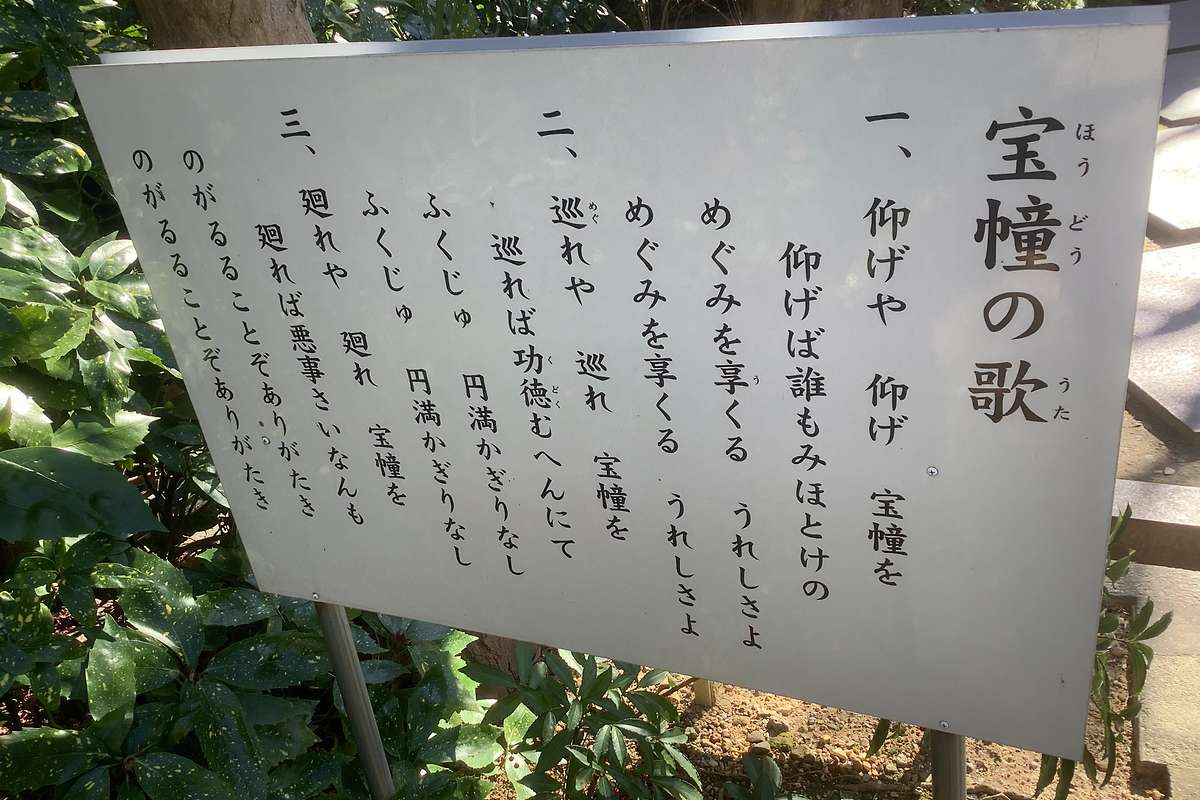 宝幢の歌
ほうどう うた
一、仰げや　仰げ　宝幢を
仰げば誰もみほとけの
めぐみを享くる　うれしさよ
う
めぐみを享くる　うれしさよ
二、巡れや　巡れ　宝幢を
めぐ
巡れば功徳むへんにて
くどく
ふくじゅ　円満かぎりなし
ふくじゅ　円満かぎりなし
三、廻れや　廻れ　宝幢を
廻れば悪事さいなんも
のがるることぞありがたき
のがるることぞありがたき